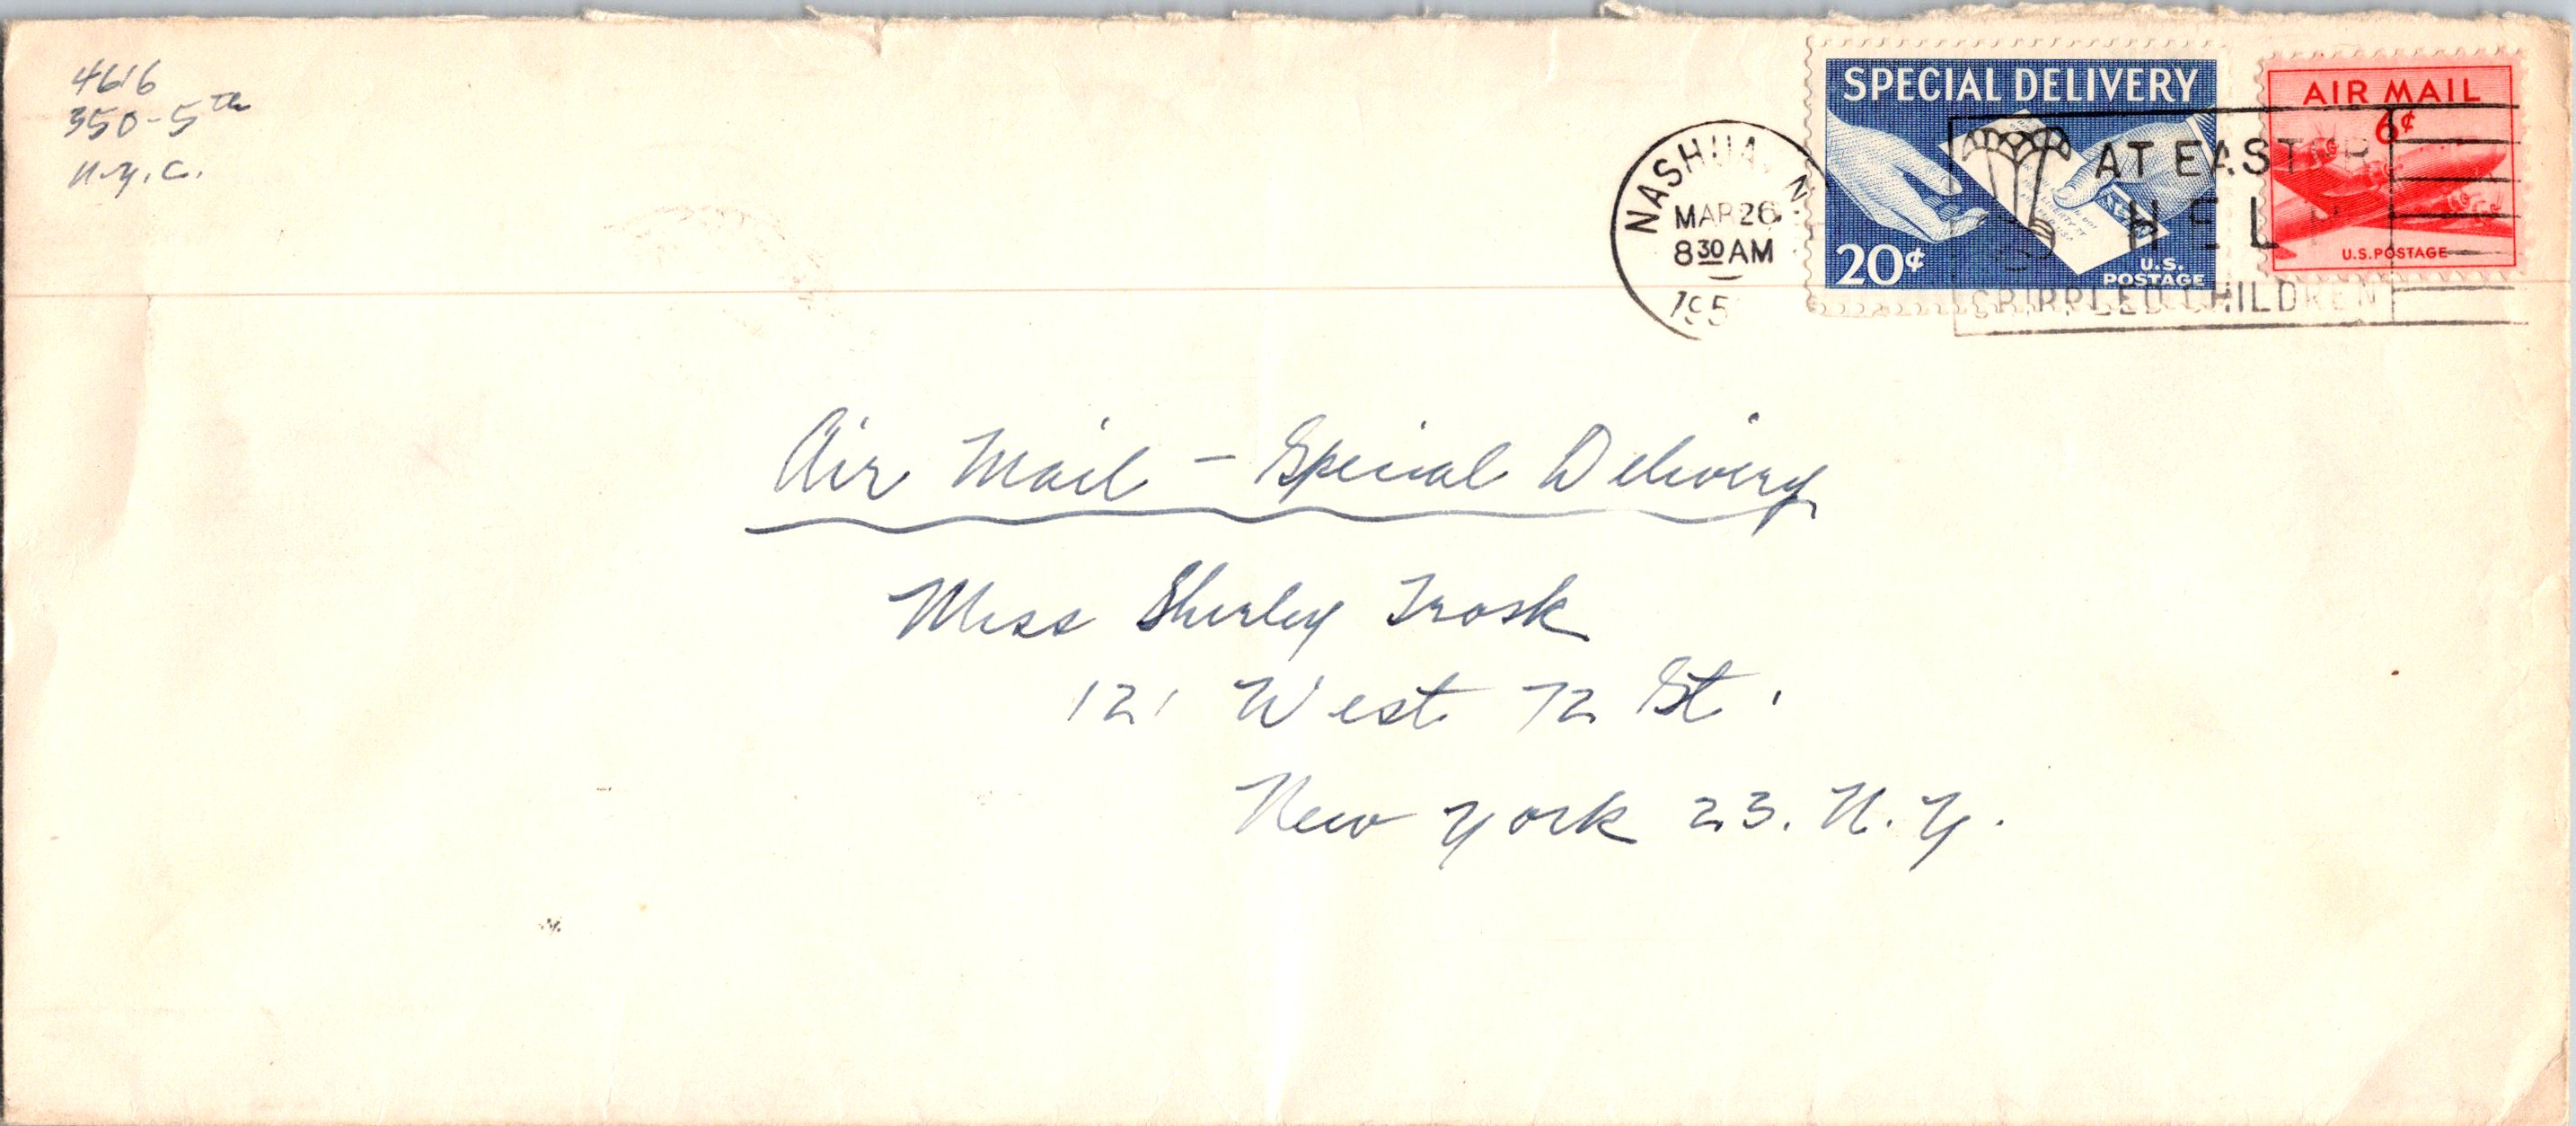 4616
350-5th
N.Y.C.
NASHUA, N
MAR 26
8 30 AM
195
SPECIAL DELIVERY
20¢
U.S.
POSTAGE
AIR MAIL
6¢
U.S. POSTAGE
AT EASTER
HELP
CRIPPLED CHILDREN
Air Mail - Special Delivery
Miss Shirley Trask
121 West 72 St.
New York 23. N.Y.